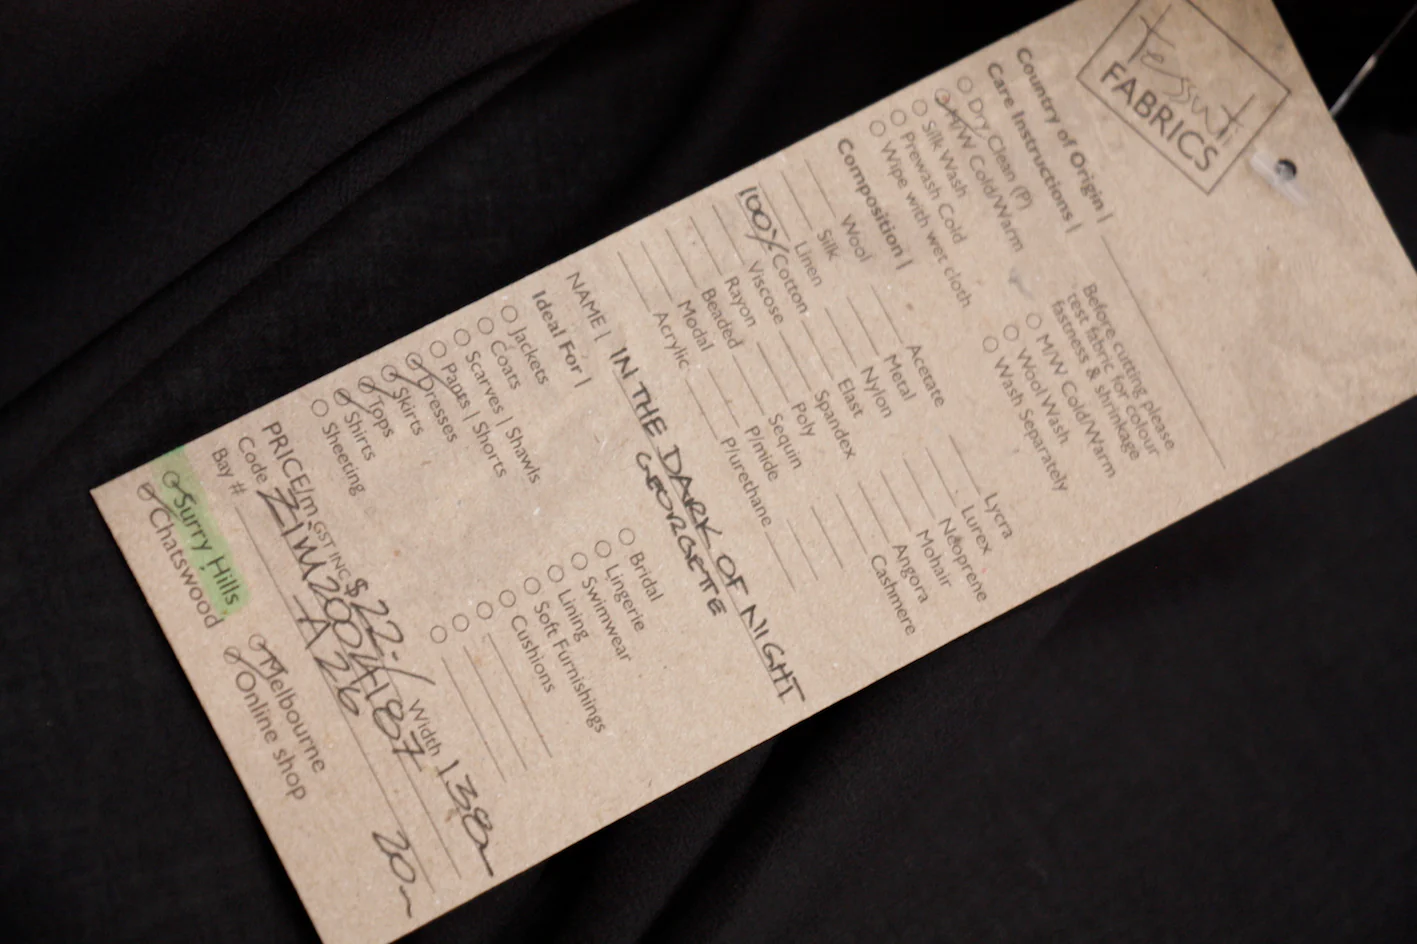 Tessuti
FABRICS
Country of Origin |
Care Instructions |
Dry Clean (P)
H/W Cold/Warm
Silk Wash
Prewash Cold
Wipe with wet cloth
Before cutting please
test fabric for colour
fastness & shrinkage
M/W Cold/Warm
Wool Wash
Wash Separately
Composition |
Wool Acetate Lycra
Silk Metal Lurex
Linen Nylon Neoprene
100% Cotton Elast Mohair
Viscose Spandex Angora
Rayon Poly Cashmere
Beaded Sequin
Modal P/mide
Acrylic P/urethane
NAME | IN THE DARK OF NIGHT
GEORGETTE
Ideal For |
Jackets Bridal
Coats Lingerie
Scarves | Shawls Swimwear
Pants | Shorts Lining
Dresses Soft Furnishings
Skirts Cushions
Tops
Shirts
Sheeting
PRICE/m GST INC $22.- Width 138
Code ZIM2004187
Bay # A26 20
Surry Hills Melbourne
Chatswood Online shop